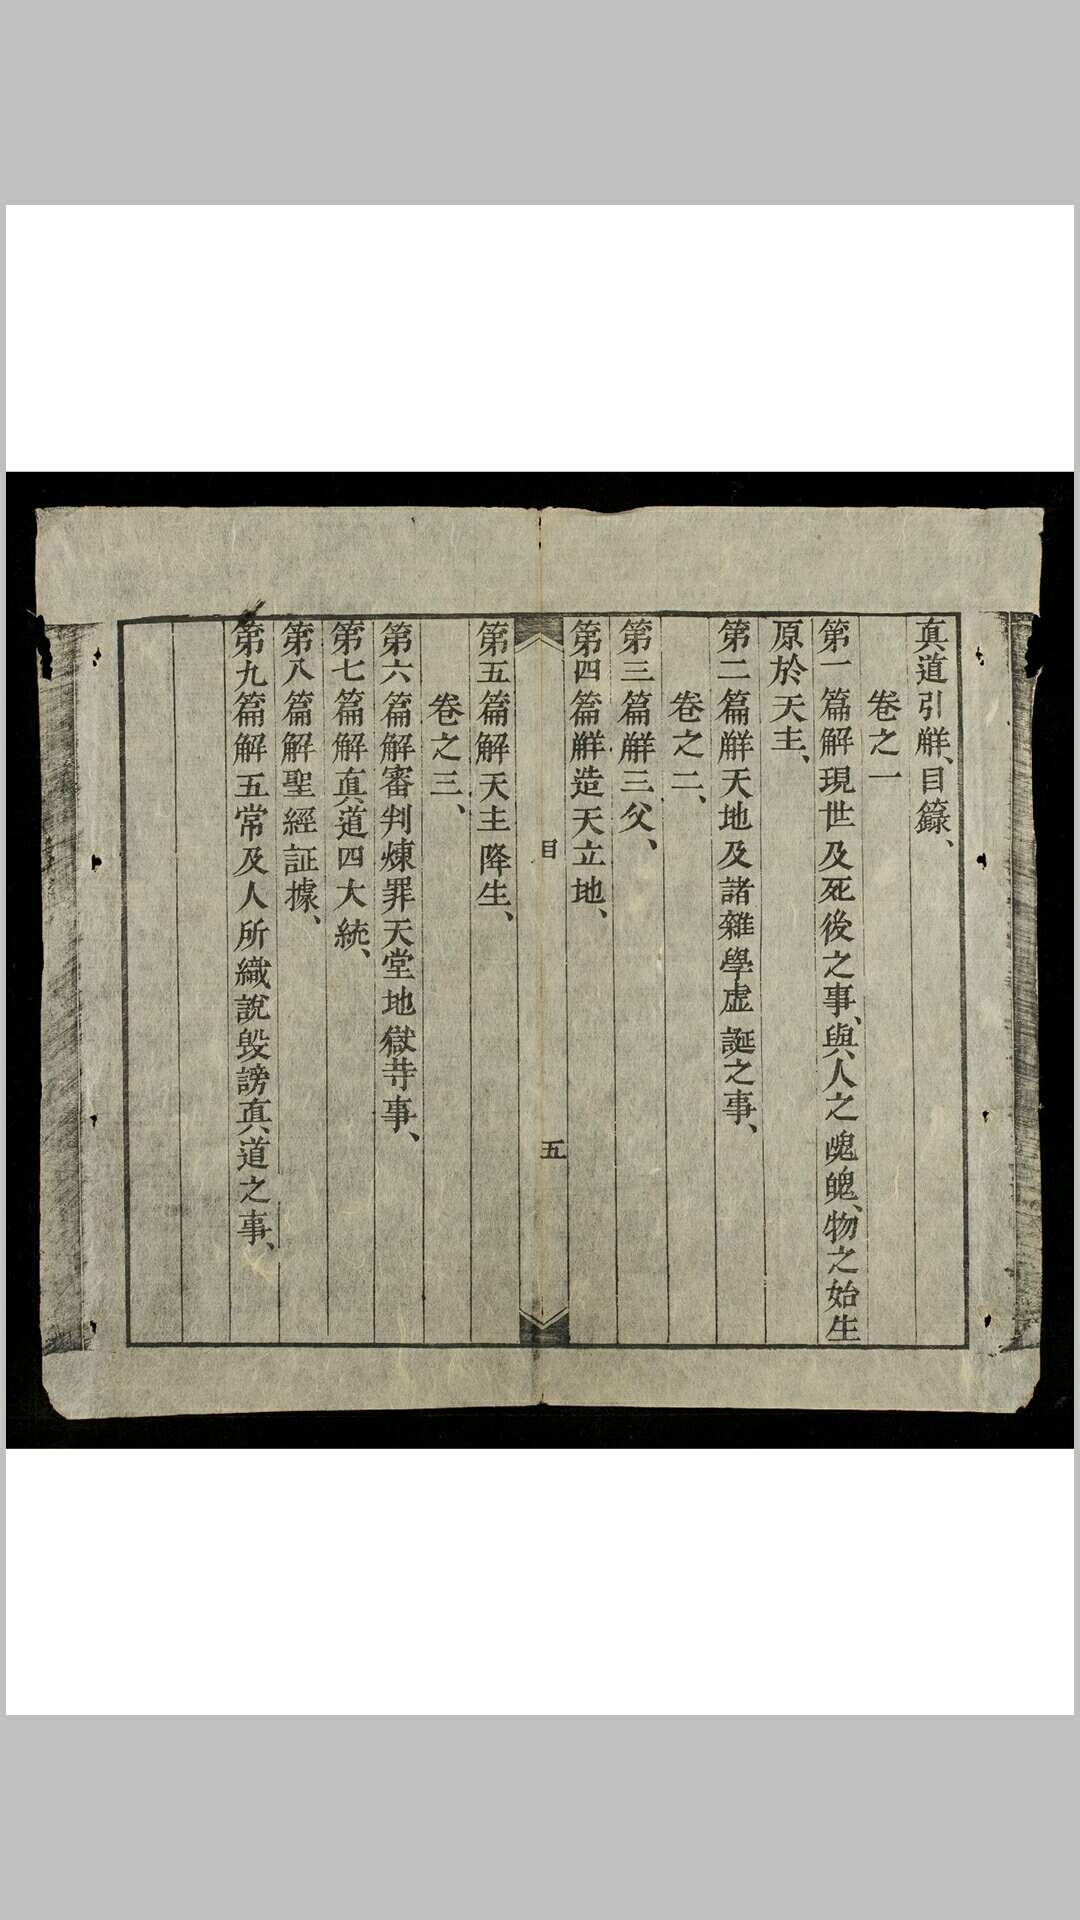 真道引觧、目錄、
卷之一
第一篇解現世及死後之事、與人之䰟魄、物之始生
原於天主、
第二篇觧天地及諸雜學虛誕之事、
卷之二、
第三篇觧三父、
第四篇觧造天立地、
目
五
第五篇解天主降生、
卷之三、
第六篇解審判煉罪天堂地獄䓁事、
第七篇解真道四大統、
第八篇解聖經証據、
第九篇解五常及人所織說毁謗真道之事、